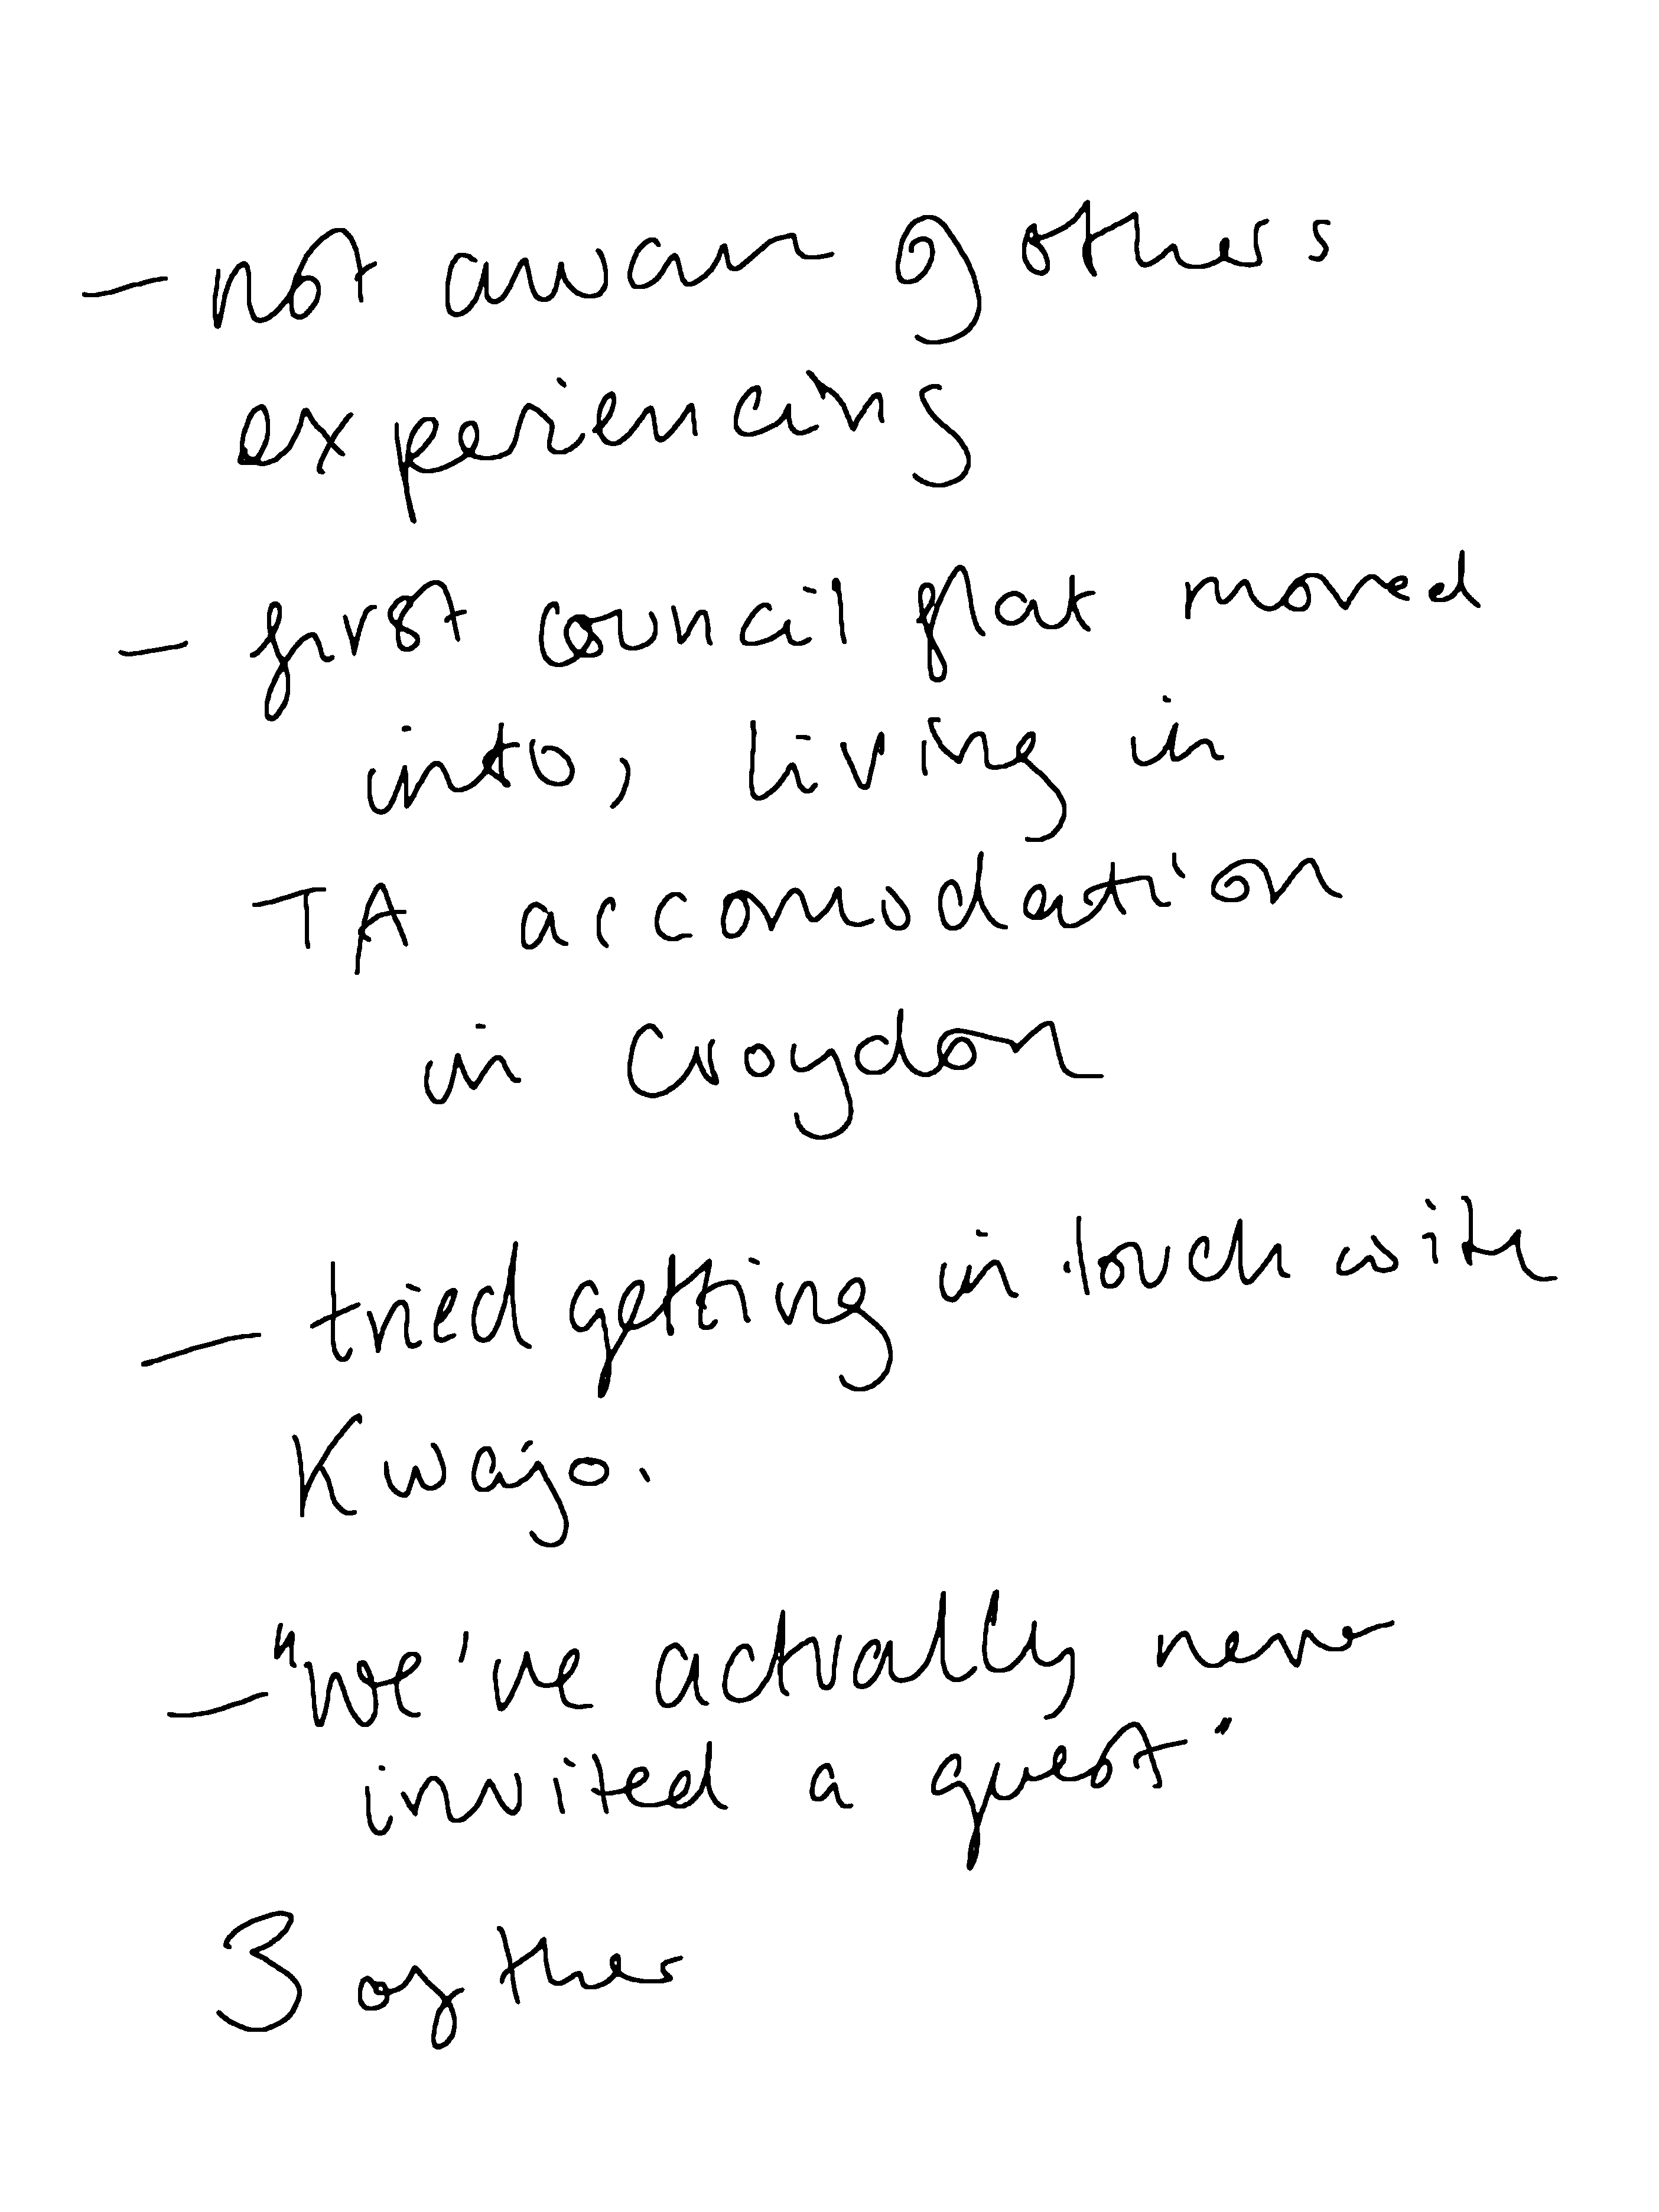 - not aware of others
experiencing
- first council flat moved
into, living in
TA accomodation
in Croydon
- tried getting in touch with
Kwajo.
- "We've actually never
invited a guest"
3 of them